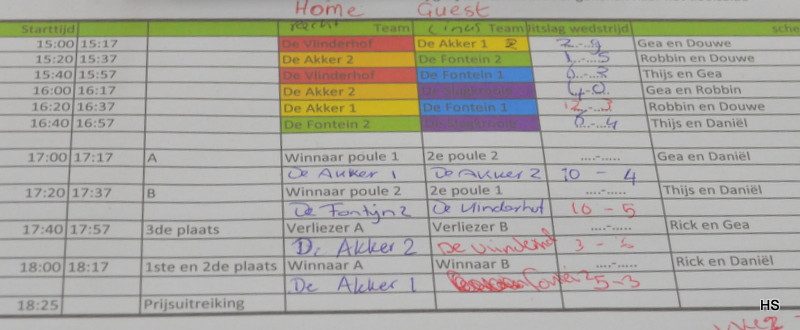 Home Guest
recht Team Linus Team Uitslag wedstrijd sche
Starttijd
15:00 15:17 De Vlinderhof De Akker 1 Gea en Douwe
15:20 15:37 De Akker 2 De Fontein 2 Robbin en Douwe
15:40 15:57 De Vlinderhof De Fontein 1 Thijs en Gea
16:00 16:17 De Akker 2 Gea en Robbin
16:20 16:37 De Akker 1 De Fontein 1 12 - 3 Robbin en Douwe
16:40 16:57 De Fontein 2 0 - 4 Thijs en Daniël
17:00 17:17 A Winnaar poule 1 2e poule 2 ....-..... Gea en Daniël
De Akker 1 De Akker 2 10 - 4
17:20 17:37 B Winnaar poule 2 2e poule 1 ....-..... Thijs en Daniël
De Fontijn 2 De Vlinderhof 10 - 5
17:40 17:57 3de plaats Verliezer A Verliezer B ....-..... Rick en Gea
De Akker 2 De Vlinderhof 3 -
18:00 18:17 1ste en 2de plaats Winnaar A Winnaar B ....-..... Rick en Daniël
De Akker 1 5-3
18:25 Prijsuitreiking
HS